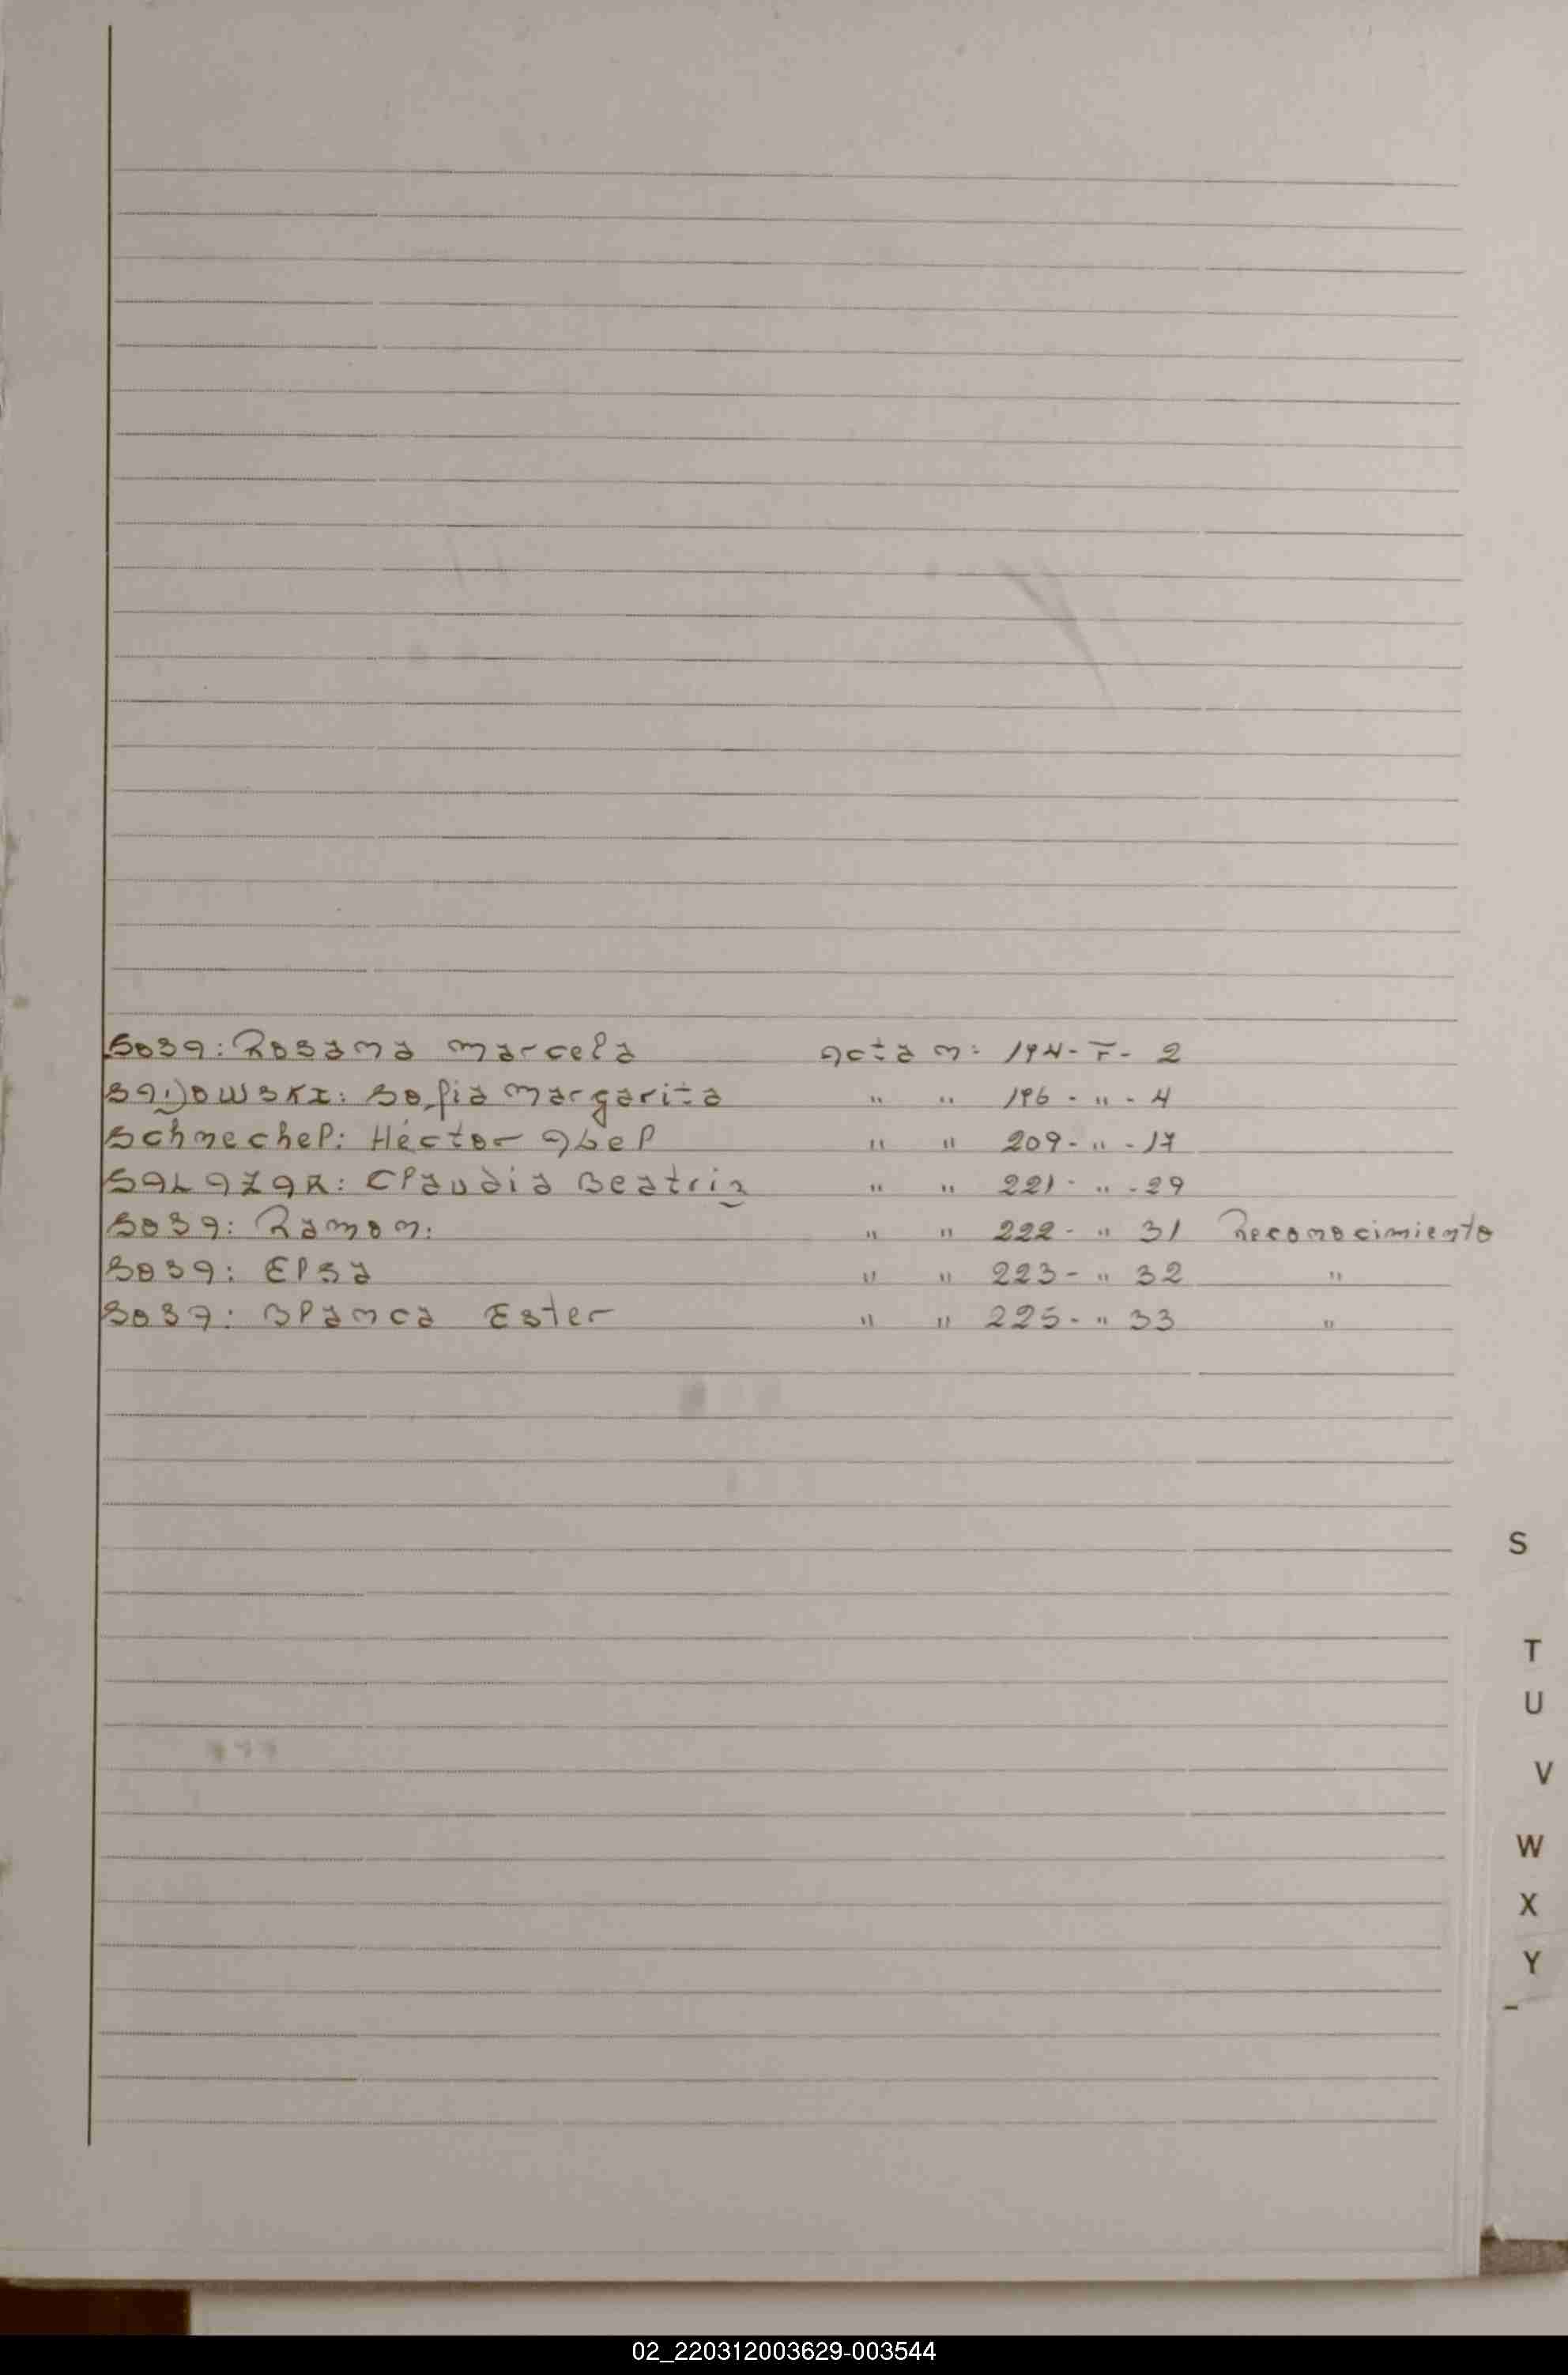 SOSA: Rosana Marcela Acta N: 194-F-2
SAIJOWSKI: Sofia Margarita " " 196-"-4
Schnechel: Héctor Abel " " 209-"-17
SALAZAR: Claudia Beatriz " " 221-"-29
SOSA: Ramon. " " 222-" 31 Reconocimiento
SOSA: Elsa " " 223-" 32 "
SOSA: Blanca Ester " " 225-" 33 "
S
T
U
V
W
X
Y
02_220312003629-003544